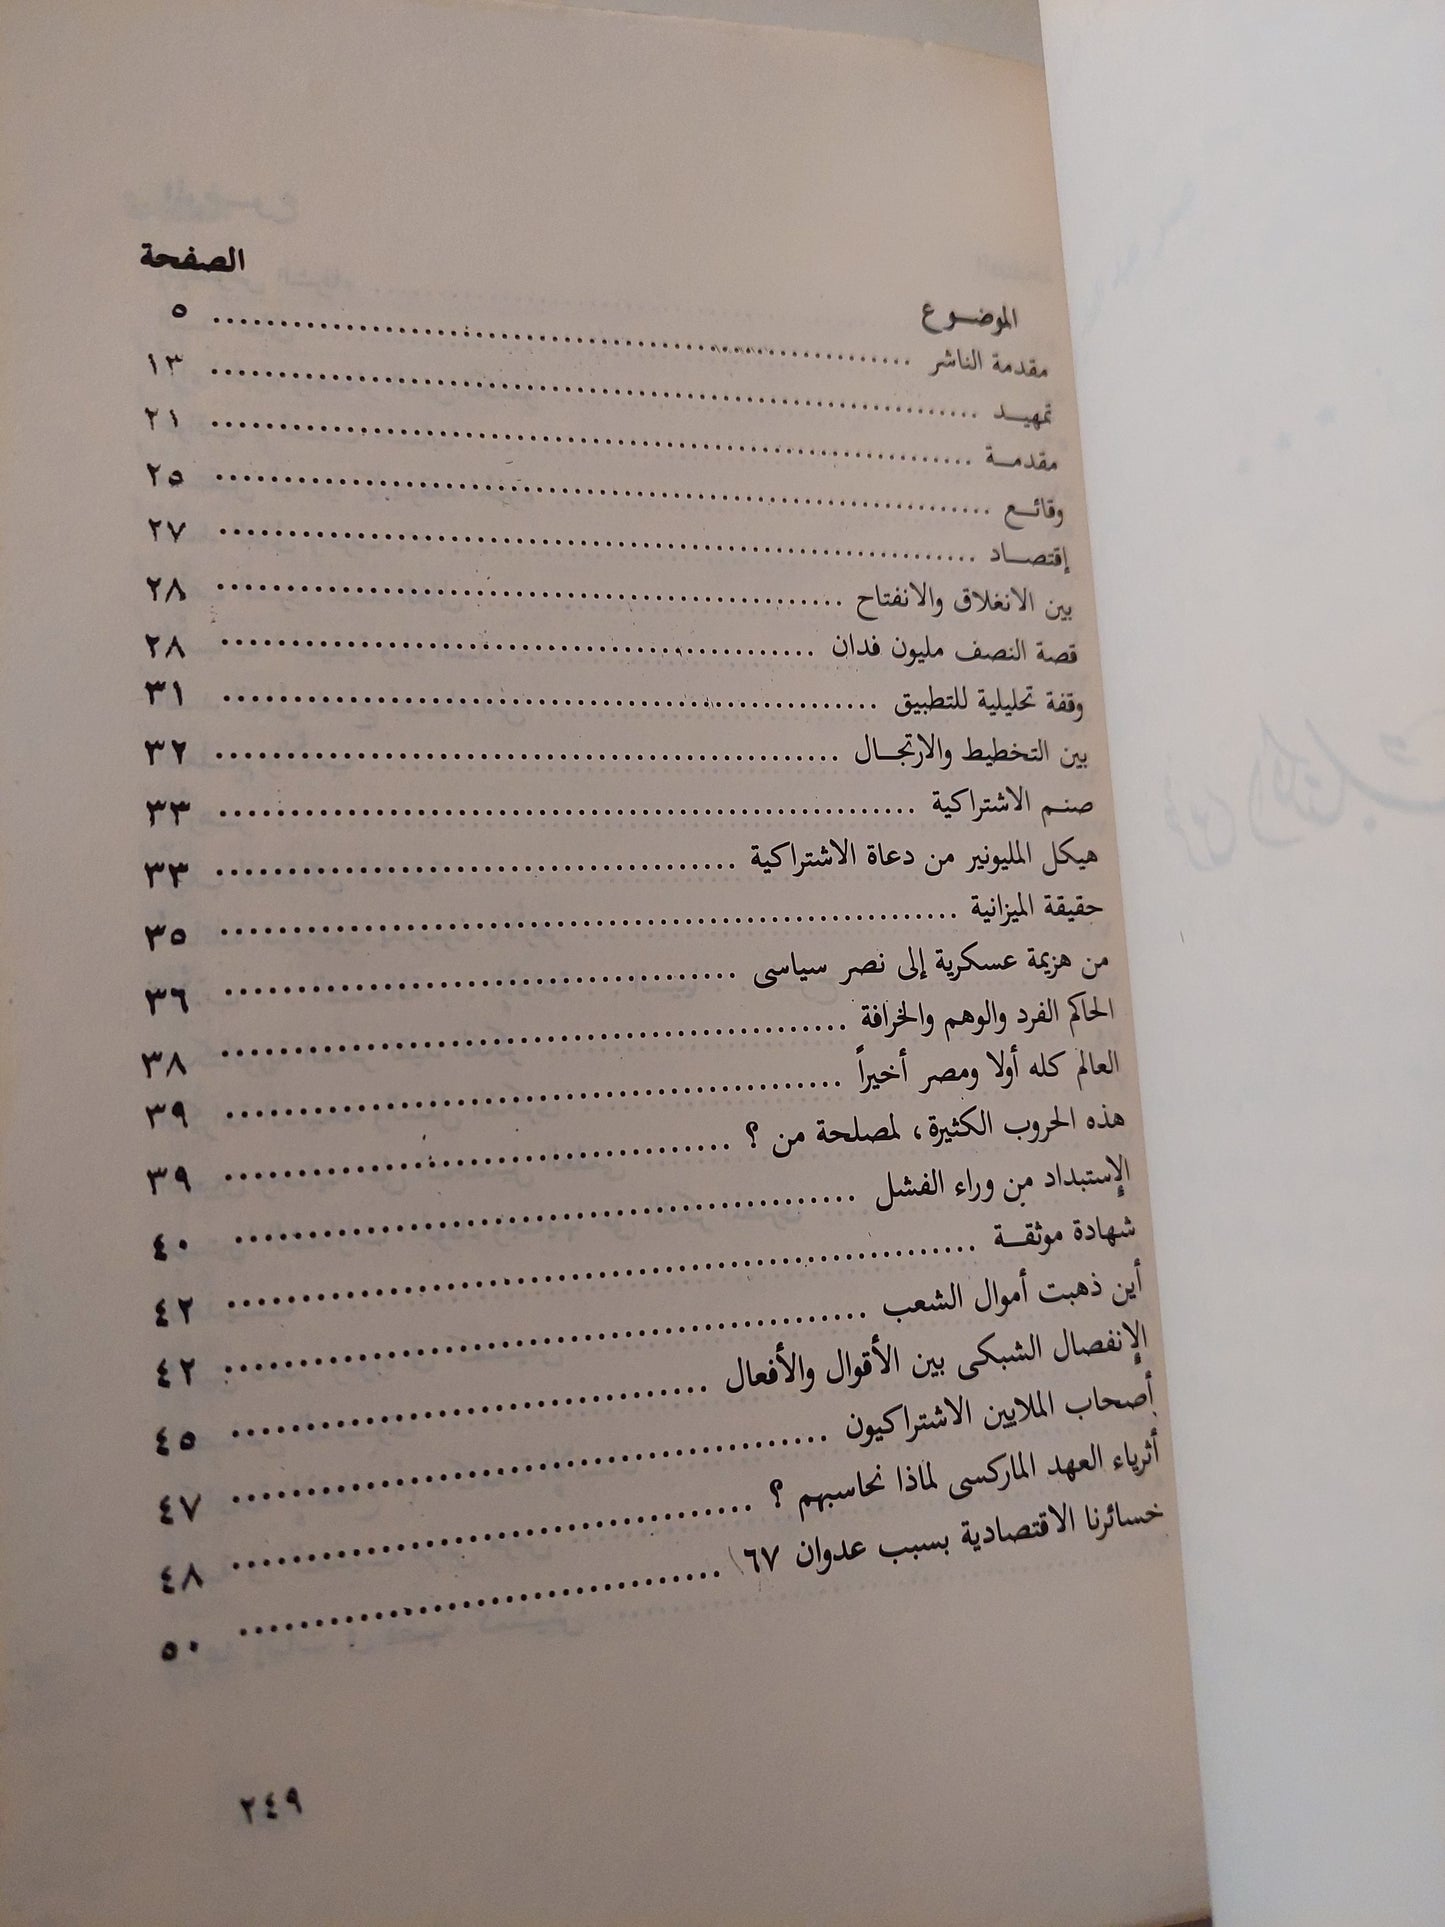 الموضوع الصفحة
مقدمة الناشر ٥
تمهيد ١٣
مقدمة ٢١
وقائع ٢٥
إقتصاد ٢٧
بين الانغلاق والانفتاح ٢٨
قصة النصف مليون فدان ٢٨
وقفة تحليلية للتطبيق ٣١
بين التخطيط والارتجال ٣٢
صنم الاشتراكية ٣٣
هيكل المليونير من دعاة الاشتراكية ٣٣
حقيقة الميزانية ٣٥
من هزيمة عسكرية إلى نصر سياسى ٣٦
الحاكم الفرد والوهم والخرافة ٣٨
العالم كله أولا ومصر أخيراً ٣٩
هذه الحروب الكثيرة، لمصلحة من ؟ ٣٩
الإستبداد من وراء الفشل ٤٠
شهادة موثقة ٤٢
أين ذهبت أموال الشعب ٤٢
الإنفصال الشبكى بين الأقوال والأفعال ٤٥
أصحاب الملايين الاشتراكيون ٤٧
أثرياء العهد الماركسى لماذا نحاسبهم ؟ ٤٨
خسائرنا الاقتصادية بسبب عدوان ٦٧ ٥٠
٢٤٩